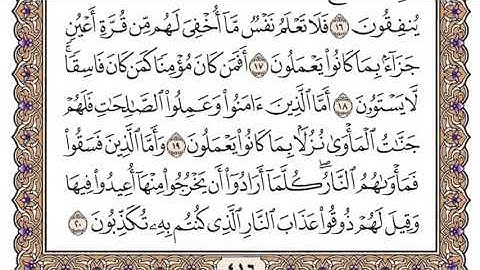 يُنفِقُونَ ١٦ فَلَا تَعْلَمُ نَفْسٌ مَّآ أُخْفِيَ لَهُم مِّن قُرَّةِ أَعْيُنٍ
جَزَآءًۢ بِمَا كَانُوا۟ يَعْمَلُونَ ١٧ أَفَمَن كَانَ مُؤْمِنًا كَمَن كَانَ فَاسِقًا ۚ
لَّا يَسْتَوُۥنَ ١٨ أَمَّا ٱلَّذِينَ ءَامَنُوا۟ وَعَمِلُوا۟ ٱلصَّـٰلِحَـٰتِ فَلَهُمْ
جَنَّـٰتُ ٱلْمَأْوَىٰ نُزُلًۢا بِمَا كَانُوا۟ يَعْمَلُونَ ١٩ وَأَمَّا ٱلَّذِينَ فَسَقُوا۟
فَمَأْوَىٰهُمُ ٱلنَّارُ ۖ كُلَّمَآ أَرَادُوٓا۟ أَن يَخْرُجُوا۟ مِنْهَآ أُعِيدُوا۟ فِيهَا
وَقِيلَ لَهُمْ ذُوقُوا۟ عَذَابَ ٱلنَّارِ ٱلَّذِى كُنتُم بِهِۦ تُكَذِّبُونَ ٢٠
٤١٦